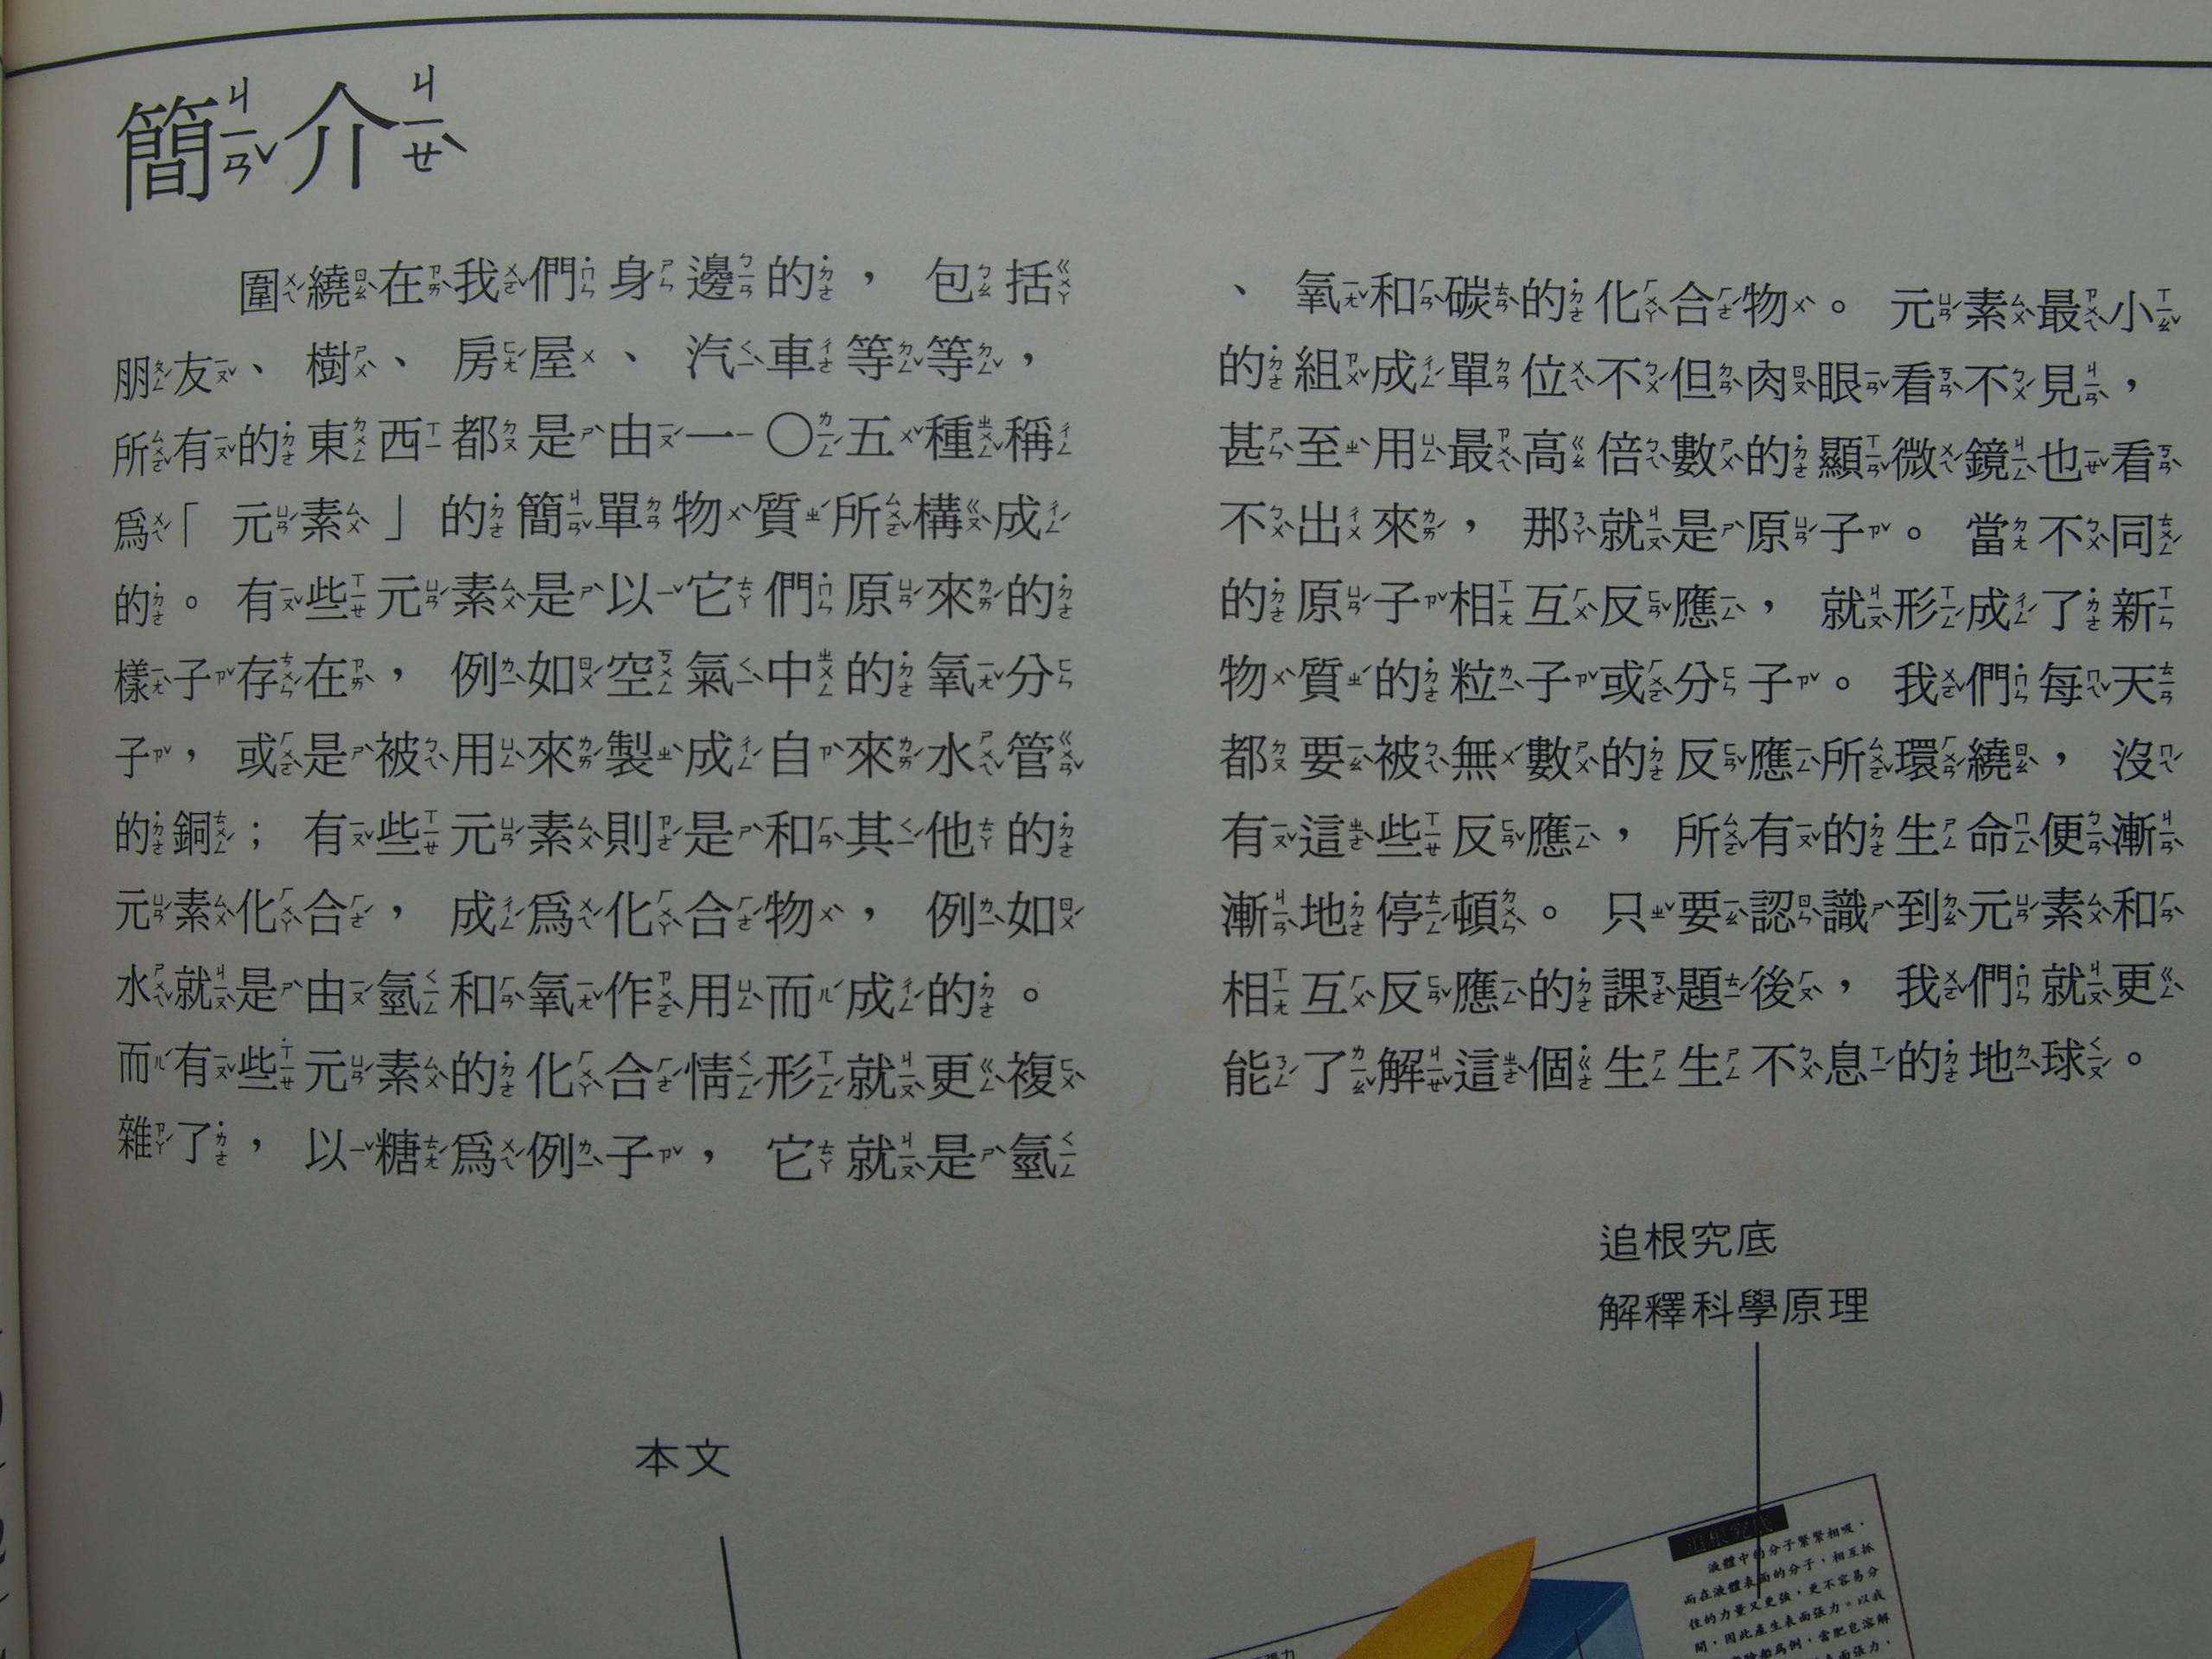 簡介
圍繞在我們身邊的，包括
朋友、樹、房屋、汽車等等，
所有的東西都是由一〇五種稱
爲「元素」的簡單物質所構成
的。有些元素是以它們原來的
樣子存在，例如空氣中的氧分
子，或是被用來製成自來水管
的銅；有些元素則是和其他的
元素化合，成爲化合物，例如
水就是由氫和氧作用而成的。
而有些元素的化合情形就更複
雜了，以糖爲例子，它就是氫
、氧和碳的化合物。元素最小
的組成單位不但肉眼看不見，
甚至用最高倍數的顯微鏡也看
不出來，那就是原子。當不同
的原子相互反應，就形成了新
物質的粒子或分子。我們每天
都要被無數的反應所環繞，沒
有這些反應，所有的生命便漸
漸地停頓。只要認識到元素和
相互反應的課題後，我們就更
能了解這個生生不息的地球。
追根究底
解釋科學原理
本文
追根究底
液體中的分子緊緊相吸，
而在液體表面的分子，相互抓
住的力量又更強，更不容易分
開，因此產生表面張力。以我
爲例，當肥皂溶解
表面張力，